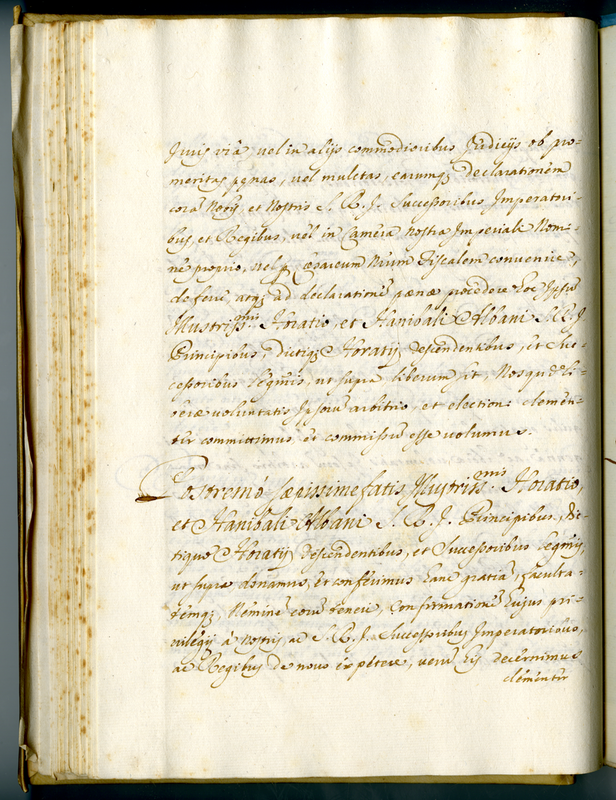 Juris viâ, vel in alijs commodioribus Judicijs ob pro-
meritas pęnas, vel mulctas, earumq; declarationem
corã Nobis, et Nostris S. R. J. Successoribus Imperatori-
bus, et Regibus, vel in Camera nostra Imperiali Nomi-
ne proprio, vel p Cæsareum Nrum Fiscalem convenire,
deferre, atq; ad declarationẽ pænæ procedere hoc Ipsũ
Illustriss.mis Horatio, et Hanibali Albani S. R. J.
Principibus, dictiq; Horatij descendentibus, et Suc-
cessoribus legmis, ut supra liberum sit, Nosque li-
beræ voluntatis Ipsorũ arbitrio, et electioni clemen-
ter committimus et commissũ esse volumus.
Postremò sæpissimefatis Illustriss.mis Horatio,
et Hanibali Albani S. R. J. Principibus, dic-
tique Horatij descendentibus, et Successoribus legmis,
ut supra donamus, et conferimus hanc gratiã, faculta-
temq; Neminẽ eorũ teneri, Confirmationẽ hujus pri-
vilegij à nostris ac S. R. J. Successoribus Imperatoribus,
ac Regibus de novo expetere, verũ his decernimus
clementer